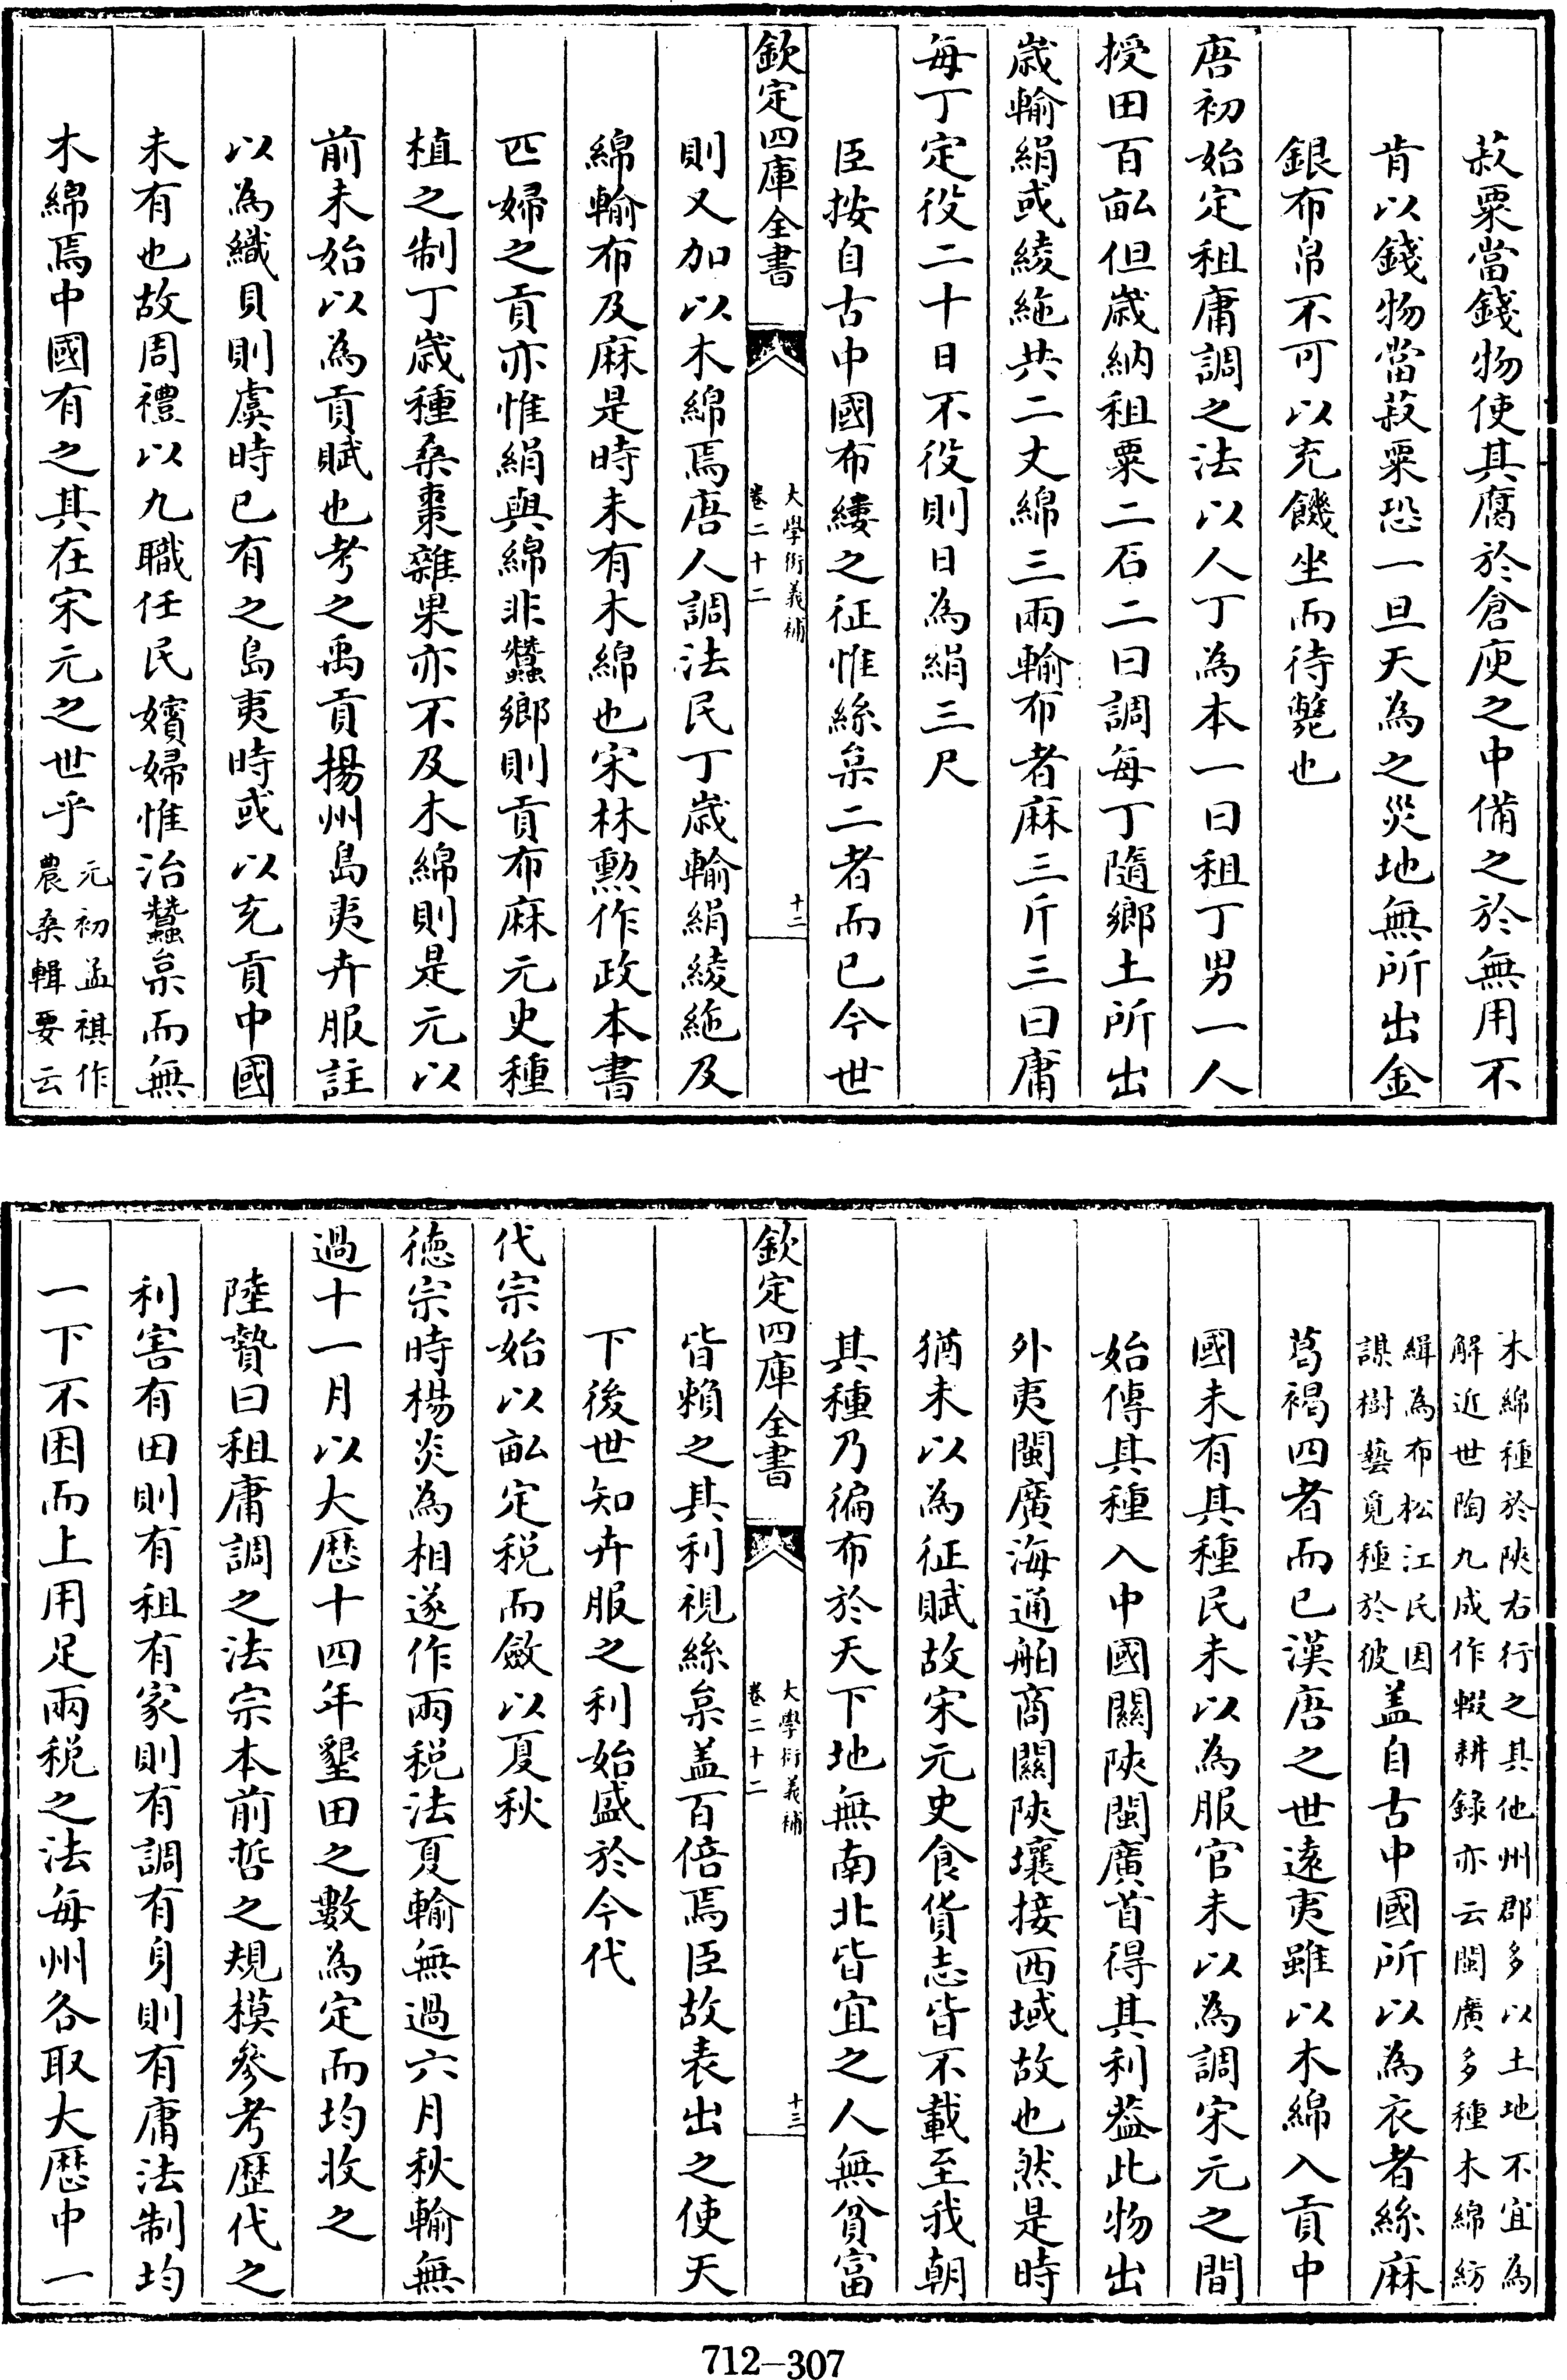 菽粟當錢物使其腐於倉庾之中備之於無用不
肯以錢物當菽粟恐一旦天為之災地無所出金
銀布帛不可以充饑坐而待斃也
唐初始定租庸調之法以人丁為本一曰租丁男一人
授田百畝但歲納租粟二石二曰調每丁隨鄉土所出
歲輸絹或綾絁共二丈綿三兩輸布者麻三斤三曰庸
每丁定役二十日不役則日為絹三尺
臣按自古中國布縷之征惟絲枲二者而已今世
欽定四庫全書
大學衍義補
卷二十二
十二
則又加以木綿焉唐人調法民丁歲輸絹綾絁及
綿輸布及麻是時未有木綿也宋林勲作政本書
匹婦之貢亦惟絹與綿非蠶鄉則貢布麻元史種
植之制丁歲種桑棗雜果亦不及木綿則是元以
前未始以為貢賦也考之禹貢揚州島夷卉服註
以為織貝則虞時已有之島夷時或以充貢中國
未有也故周禮以九職任民嬪婦惟治蠶枲而無
木綿焉中國有之其在宋元之世乎
元初孟祺作
農桑輯要云
木綿種於陝右行之其他州郡多以土地不宜為
解近世陶九成作輟耕録亦云閩廣多種木綿紡
緝為布松江民因
謀樹藝覓種於彼
盖自古中國所以為衣者絲麻
葛褐四者而已漢唐之世遠夷雖以木綿入貢中
國未有其種民未以為服官未以為調宋元之間
始傳其種入中國關陝閩廣首得其利葢此物出
外夷閩廣海通舶商關陝壤接西域故也然是時
猶未以為征賦故宋元史食貨志皆不載至我朝
其種乃徧布於天下地無南北皆宜之人無貧富
欽定四庫全書
大學衍義補
卷二十二
十三
皆賴之其利視絲枲盖百倍焉臣故表出之使天
下後世知卉服之利始盛於今代
代宗始以畝定税而斂以夏秋
德宗時楊炎為相遂作兩税法夏輸無過六月秋輸無
過十一月以大厯十四年墾田之數為定而均收之
陸贄曰租庸調之法宗本前哲之規模參考歷代之
利害有田則有租有家則有調有身則有庸法制均
一下不困而上用足兩税之法每州各取大厯中一
712-307